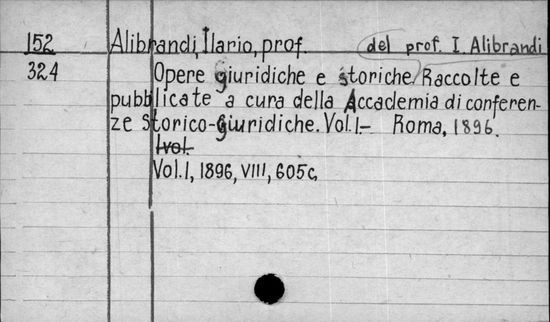 152 Alibrandi, Ilario, prof. del prof. I. Alibrandi
324 Opere giuridiche e storiche. Raccolte e
pubblicate a cura della Accademia di conferen-
ze storico-giuridiche. Vol. 1.– Roma, 1896.
1 vol.
Vol. 1, 1896, VIII, 605c.